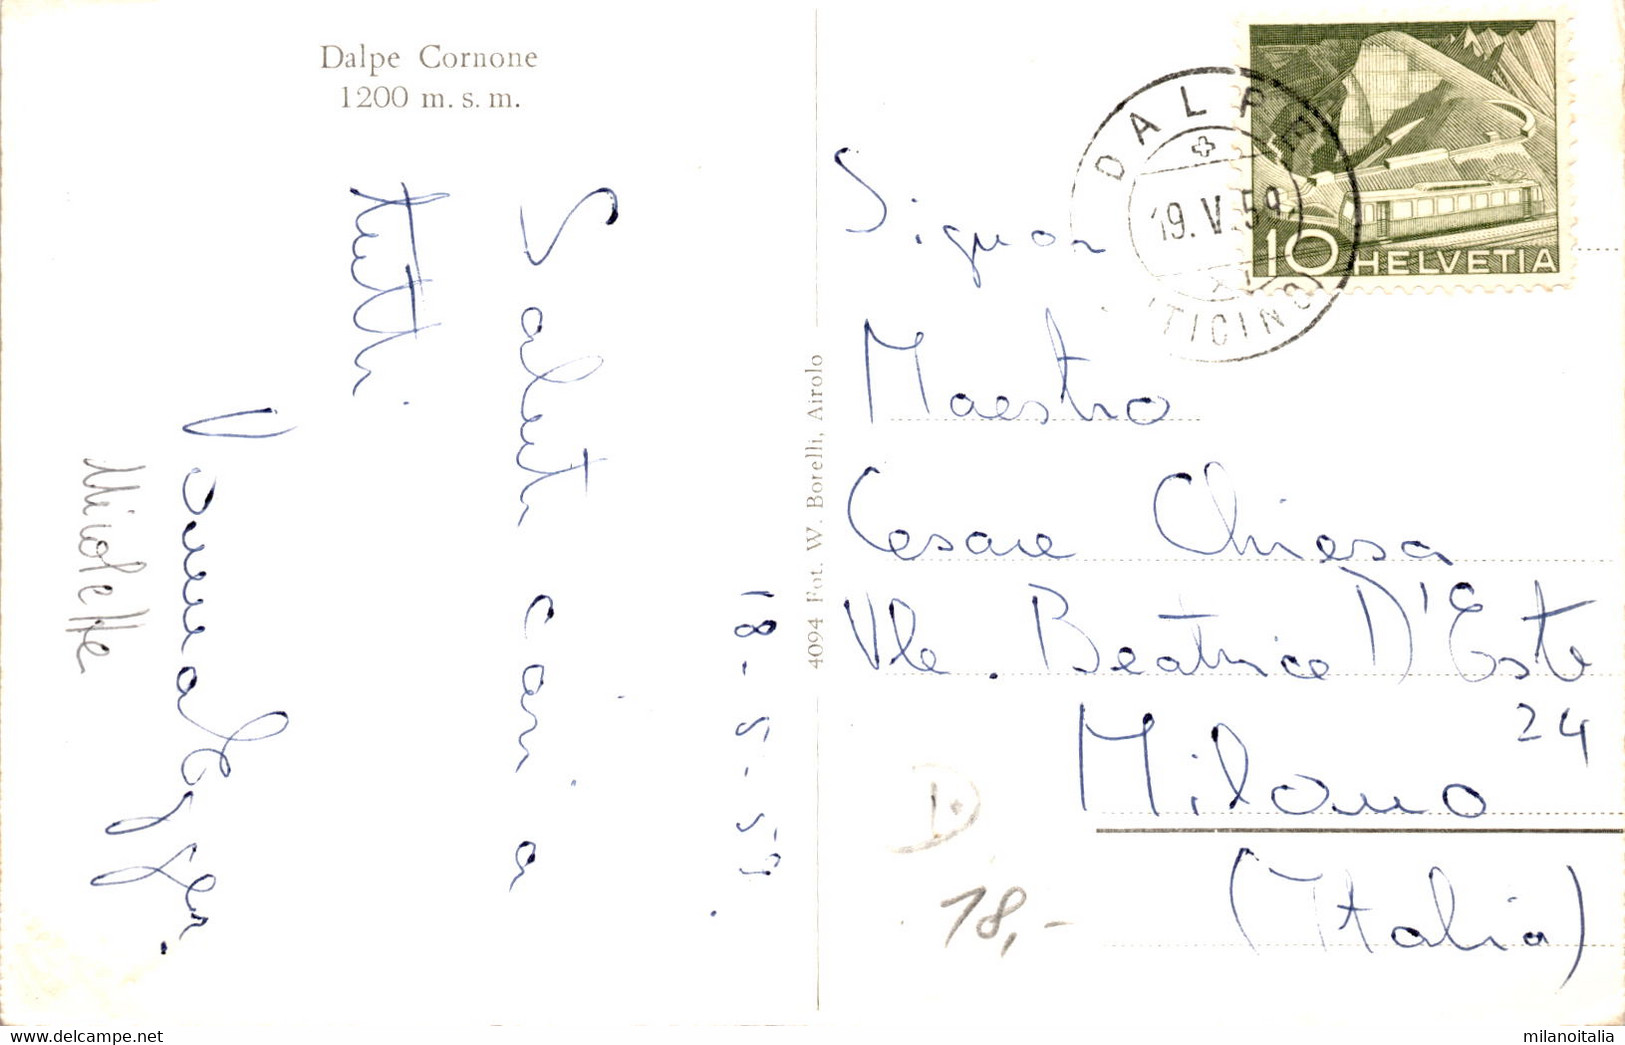 Dalpe Cornone
1200 m. s. m.
18-5-59.
Saluti cari a
tutti
4094 Fot. W. Borelli, Airolo
DALPE
19.V.59.
(TICINO)
10 HELVETIA
Signor
Maestro
Cesare Chiesa
Vle. Beatrice D'Este
24
Milano
(Italia)
D.
18,-
milanoitalia